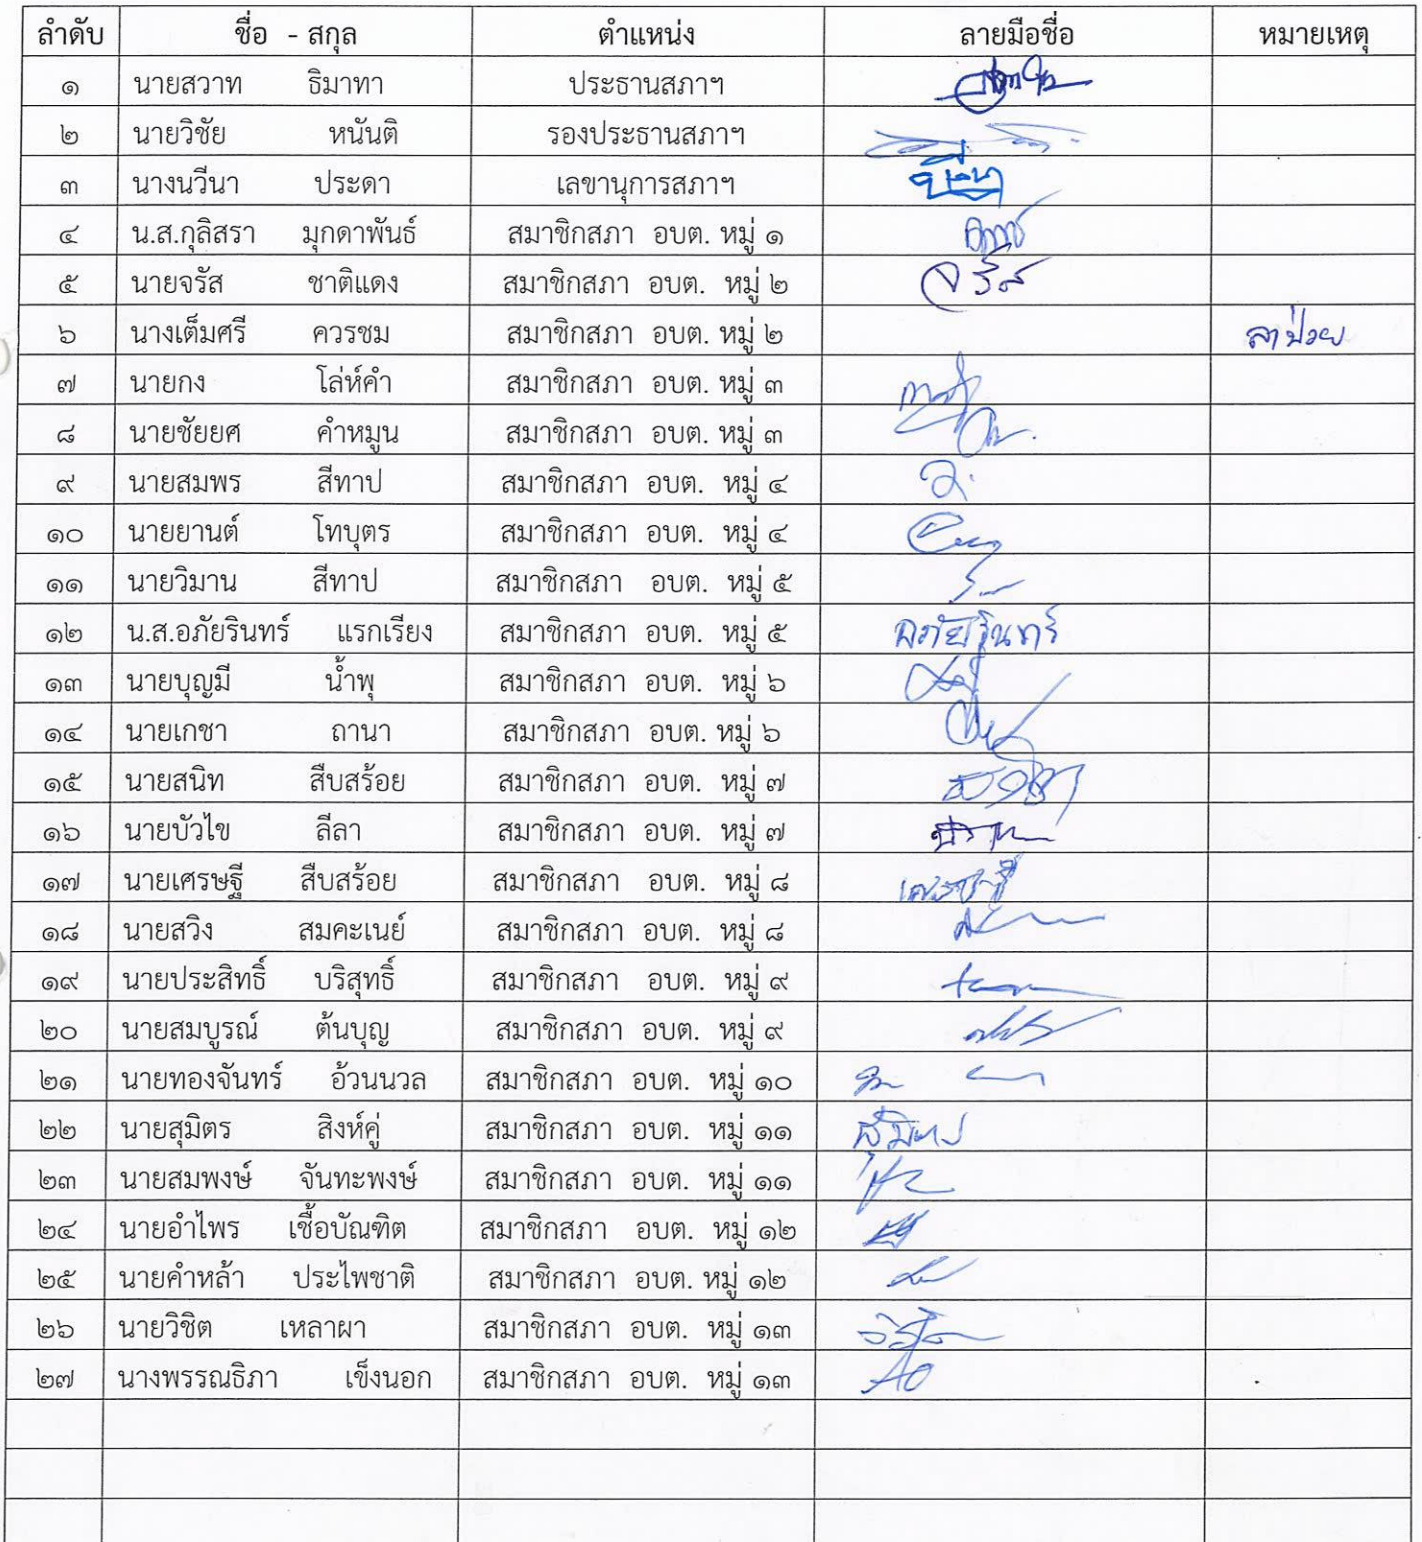 ลำดับ ชื่อ - สกุล ตำแหน่ง ลายมือชื่อ หมายเหตุ
๑ นายสวาท ธิมาทา ประธานสภาฯ
๒ นายวิชัย หนันติ รองประธานสภาฯ
๓ นางนวีนา ประดา เลขานุการสภาฯ
๔ น.ส.กุลิสรา มุกดาพันธ์ สมาชิกสภา อบต. หมู่ ๑
๕ นายจรัส ชาติแดง สมาชิกสภา อบต. หมู่ ๒ จรัส
๖ นางเต็มศรี ควรชม สมาชิกสภา อบต. หมู่ ๒ ลาป่วย
๗ นายกง โล่ห์คำ สมาชิกสภา อบต. หมู่ ๓
๘ นายชัยยศ คำหมูน สมาชิกสภา อบต. หมู่ ๓
๙ นายสมพร สีทาป สมาชิกสภา อบต. หมู่ ๔
๑๐ นายยานต์ โทบุตร สมาชิกสภา อบต. หมู่ ๔
๑๑ นายวิมาน สีทาป สมาชิกสภา อบต. หมู่ ๕
๑๒ น.ส.อภัยรินทร์ แรกเรียง สมาชิกสภา อบต. หมู่ ๕ อภัยรินทร์
๑๓ นายบุญมี น้ำพุ สมาชิกสภา อบต. หมู่ ๖
๑๔ นายเกชา ถานา สมาชิกสภา อบต. หมู่ ๖
๑๕ นายสนิท สืบสร้อย สมาชิกสภา อบต. หมู่ ๗
๑๖ นายบัวไข ลีลา สมาชิกสภา อบต. หมู่ ๗
๑๗ นายเศรษฐี สืบสร้อย สมาชิกสภา อบต. หมู่ ๘ เศรษฐี
๑๘ นายสวิง สมคะเนย์ สมาชิกสภา อบต. หมู่ ๘
๑๙ นายประสิทธิ์ บริสุทธิ์ สมาชิกสภา อบต. หมู่ ๙
๒๐ นายสมบูรณ์ ต้นบุญ สมาชิกสภา อบต. หมู่ ๙
๒๑ นายทองจันทร์ อ้วนนวล สมาชิกสภา อบต. หมู่ ๑๐
๒๒ นายสุมิตร สิงห์คู่ สมาชิกสภา อบต. หมู่ ๑๑
๒๓ นายสมพงษ์ จันทะพงษ์ สมาชิกสภา อบต. หมู่ ๑๑
๒๔ นายอำไพร เชื้อบัณฑิต สมาชิกสภา อบต. หมู่ ๑๒
๒๕ นายคำหล้า ประไพชาติ สมาชิกสภา อบต. หมู่ ๑๒
๒๖ นายวิชิต เหลาผา สมาชิกสภา อบต. หมู่ ๑๓
๒๗ นางพรรณธิภา เข็งนอก สมาชิกสภา อบต. หมู่ ๑๓